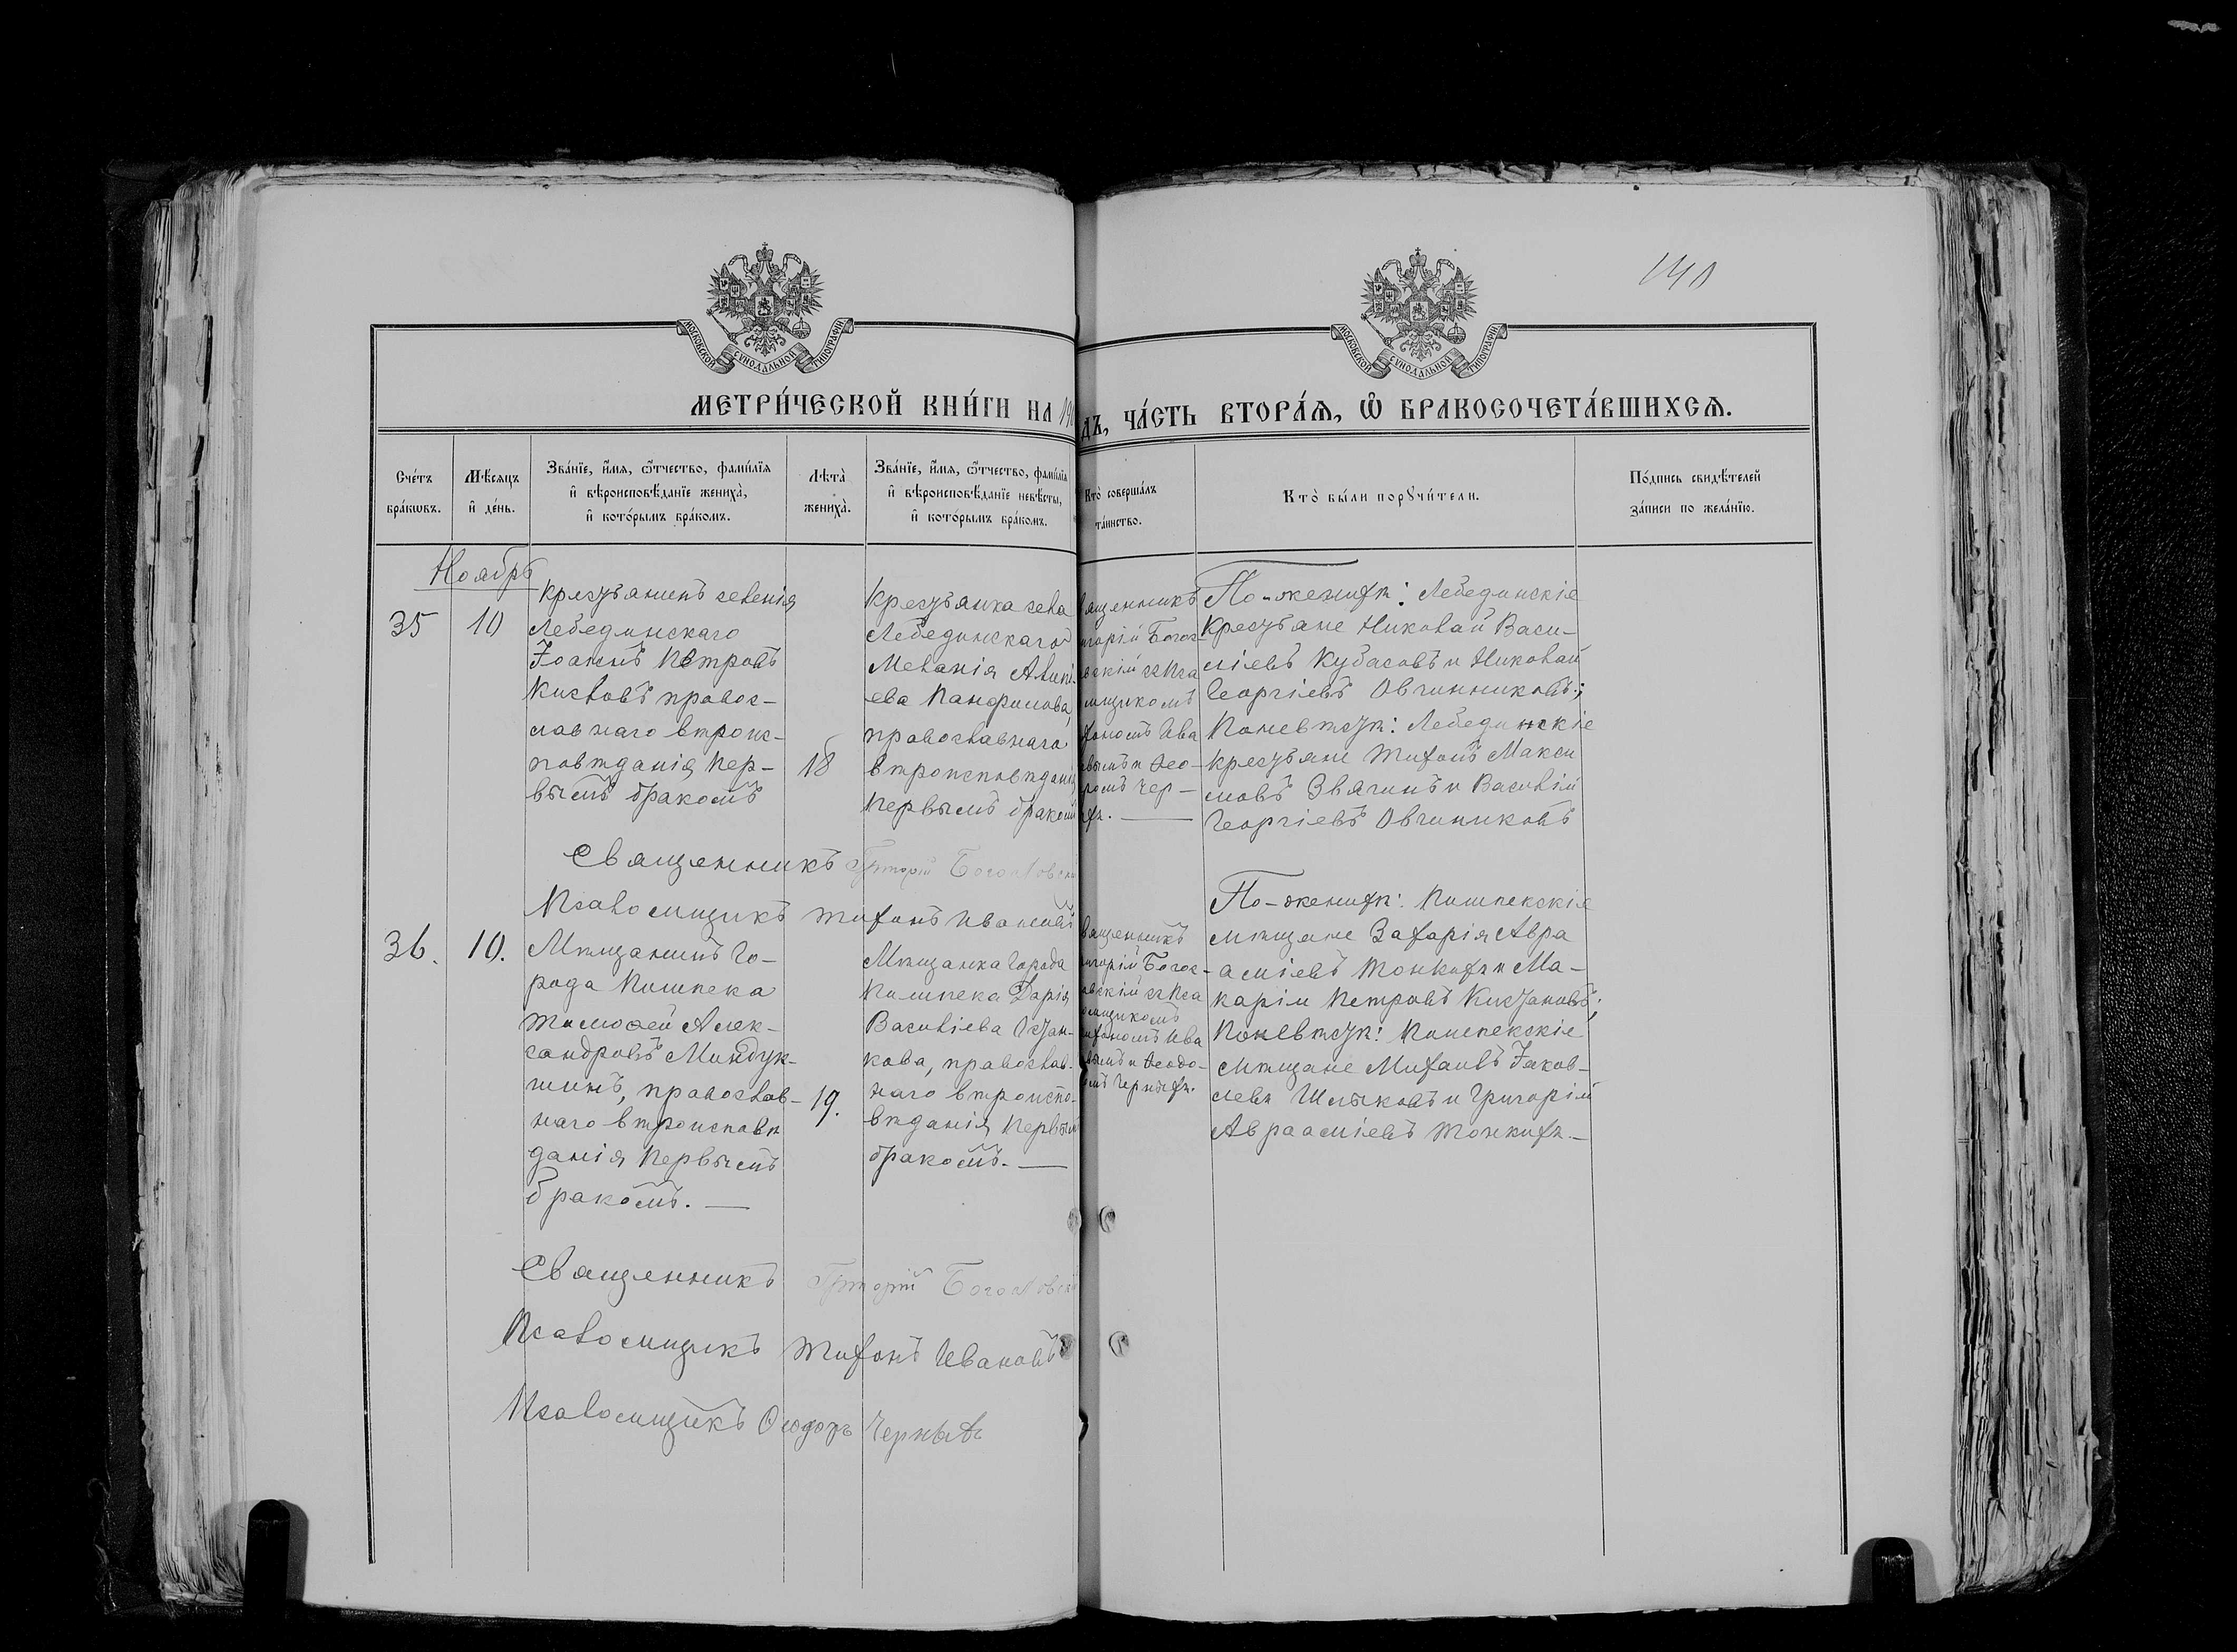 140
МОСКОВСКОЙ СУНОДАЛЬНОЙ ТИПОГРАФІИ
МОСКОВСКОЙ СУНОДАЛЬНОЙ ТИПОГРАФІИ
МЕТРИ́ЧЕСКОЙ КНИ́ГИ НА 190
ДЪ, ЧА́СТЬ ВТОРА́Ѧ, Ѽ БРАКОСОЧЕТА́ВШИХСѦ.
Сче́тъ
бра́кѡвъ.
Мѣ́сяцъ
и҆ де́нь.
Зва́нїе, и҆́мя, ѻ҆́тчество, фами́лїя
и҆ вѣроисповѣ́данїе жениха̀,
и҆ кото́рымъ бра́комъ.
Лѣ́та̀
жениха̀.
Зва́нїе, и҆́мя, ѻ҆́тчество, фами́лїя
и҆ вѣроисповѣ́данїе невѣ́сты,
и҆ кото́рымъ бра́комъ.
Кто̀ соверша́лъ
та́инство.
Кто̀ бы́ли порꙋчи́тели.
По́дпись свидѣ́телей
за́писи по жела́нїю.
Ноябрь
35
10
Крестьянинъ селенія
Лебединскаго
Іоаннъ Петровъ
Кисловъ правос-
лавнаго вѣроис-
повѣданія пер-
вымъ бракомъ
18
Крестьянка села
Лебединскаго
Меланія
ева Панфилова,
православнаго
вѣроисповѣданія
первымъ бракомъ
ященникъ
игорій Богос-
вскій съ Пса
мщикомъ
фономъ Ива
вымъ и Ѳео-
ромъ Чер-
хъ.
По-женихѣ: Лебединскіе
крестьяне Николай Васи-
ліевъ Кубасовъ и Николай
Георгіевъ Овчинниковъ;
По невѣстѣ: Лебединскіе
крестьяне Тихонъ Макси
мовъ Звягинъ и Василій
Георгіевъ Овчиниковъ
Священникъ Григорій Богословскі
Псаломщикъ Тихонъ Ивановъ
36.
10.
Мѣщанинъ го-
рода Пишпека
Тимоѳей Алек-
сандровъ Миндук-
шинъ, православ-
наго вѣроисповѣ
данія первымъ
бракомъ.
19.
Мѣщанка города
Пишпека Дарія
Василіева
кова, православ-
наго вѣроиспо-
вѣданія первымъ
бракомъ.
вященникъ
игорій Богос-
вскій съ Пса
омщикомъ
ифономъ Ива
вымъ и Ѳеодо-
омъ Черныхъ.
По-женихѣ: Пишпекскіе
мѣщане Захарія Авра
аміевъ Тонкихъ и Ма-
карій Петровъ
По невѣстѣ: Пишпекскіе
мѣщане Михаилъ Іаков-
левъ Шлыковъ и Григорій
Авраамiевъ Тонкихъ.
Священникъ Григорій Богословскій
Псаломщикъ Тихонъ Ивановъ
Псаломщикъ Ѳеодоръ Черныхъ